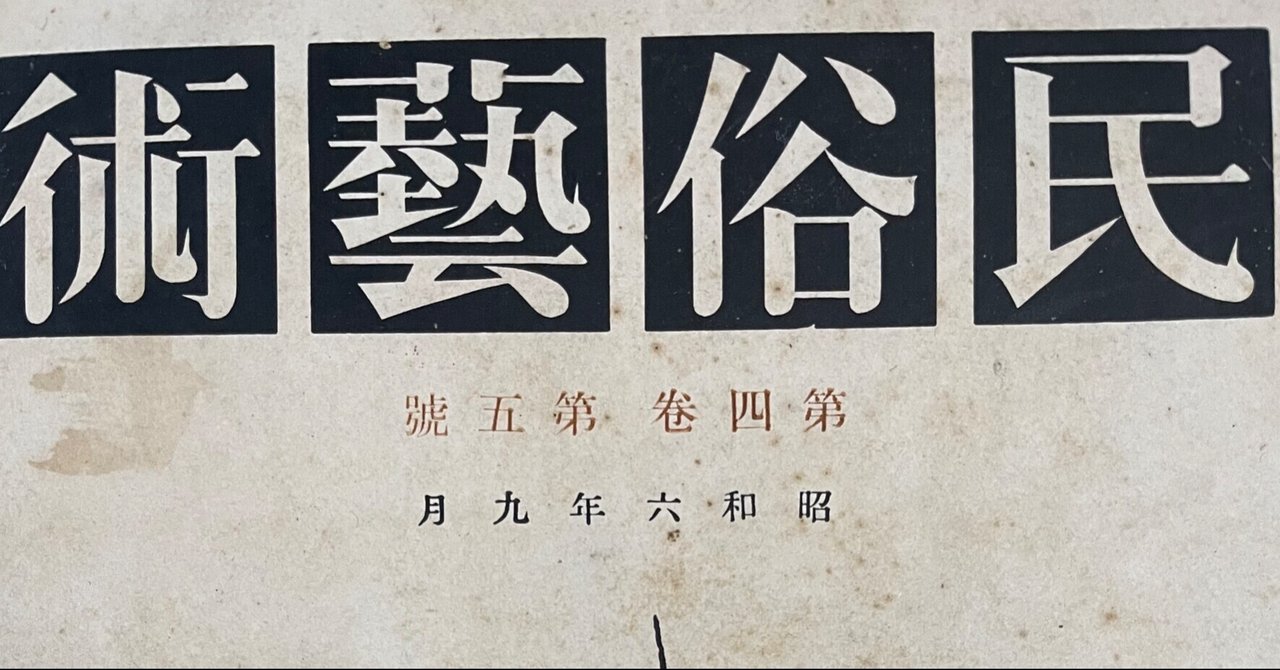 民俗藝術
第四卷 第五號
昭和六年九月